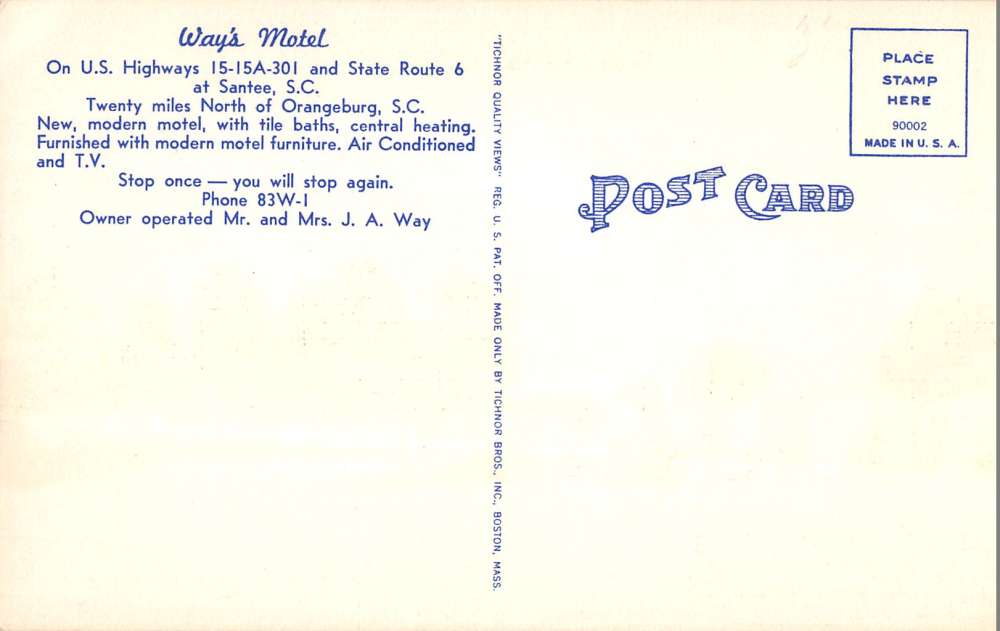 Way's Motel
On U.S. Highways 15-15A-301 and State Route 6
at Santee, S.C.
Twenty miles North of Orangeburg, S.C.
New, modern motel, with tile baths, central heating.
Furnished with modern motel furniture. Air Conditioned
and T.V.
Stop once — you will stop again.
Phone 83W-1
Owner operated Mr. and Mrs. J. A. Way
"TICHNOR QUALITY VIEWS" REG. U. S. PAT. OFF. MADE ONLY BY TICHNOR BROS., INC., BOSTON, MASS.
POST CARD
PLACE
STAMP
HERE
90002
MADE IN U. S. A.